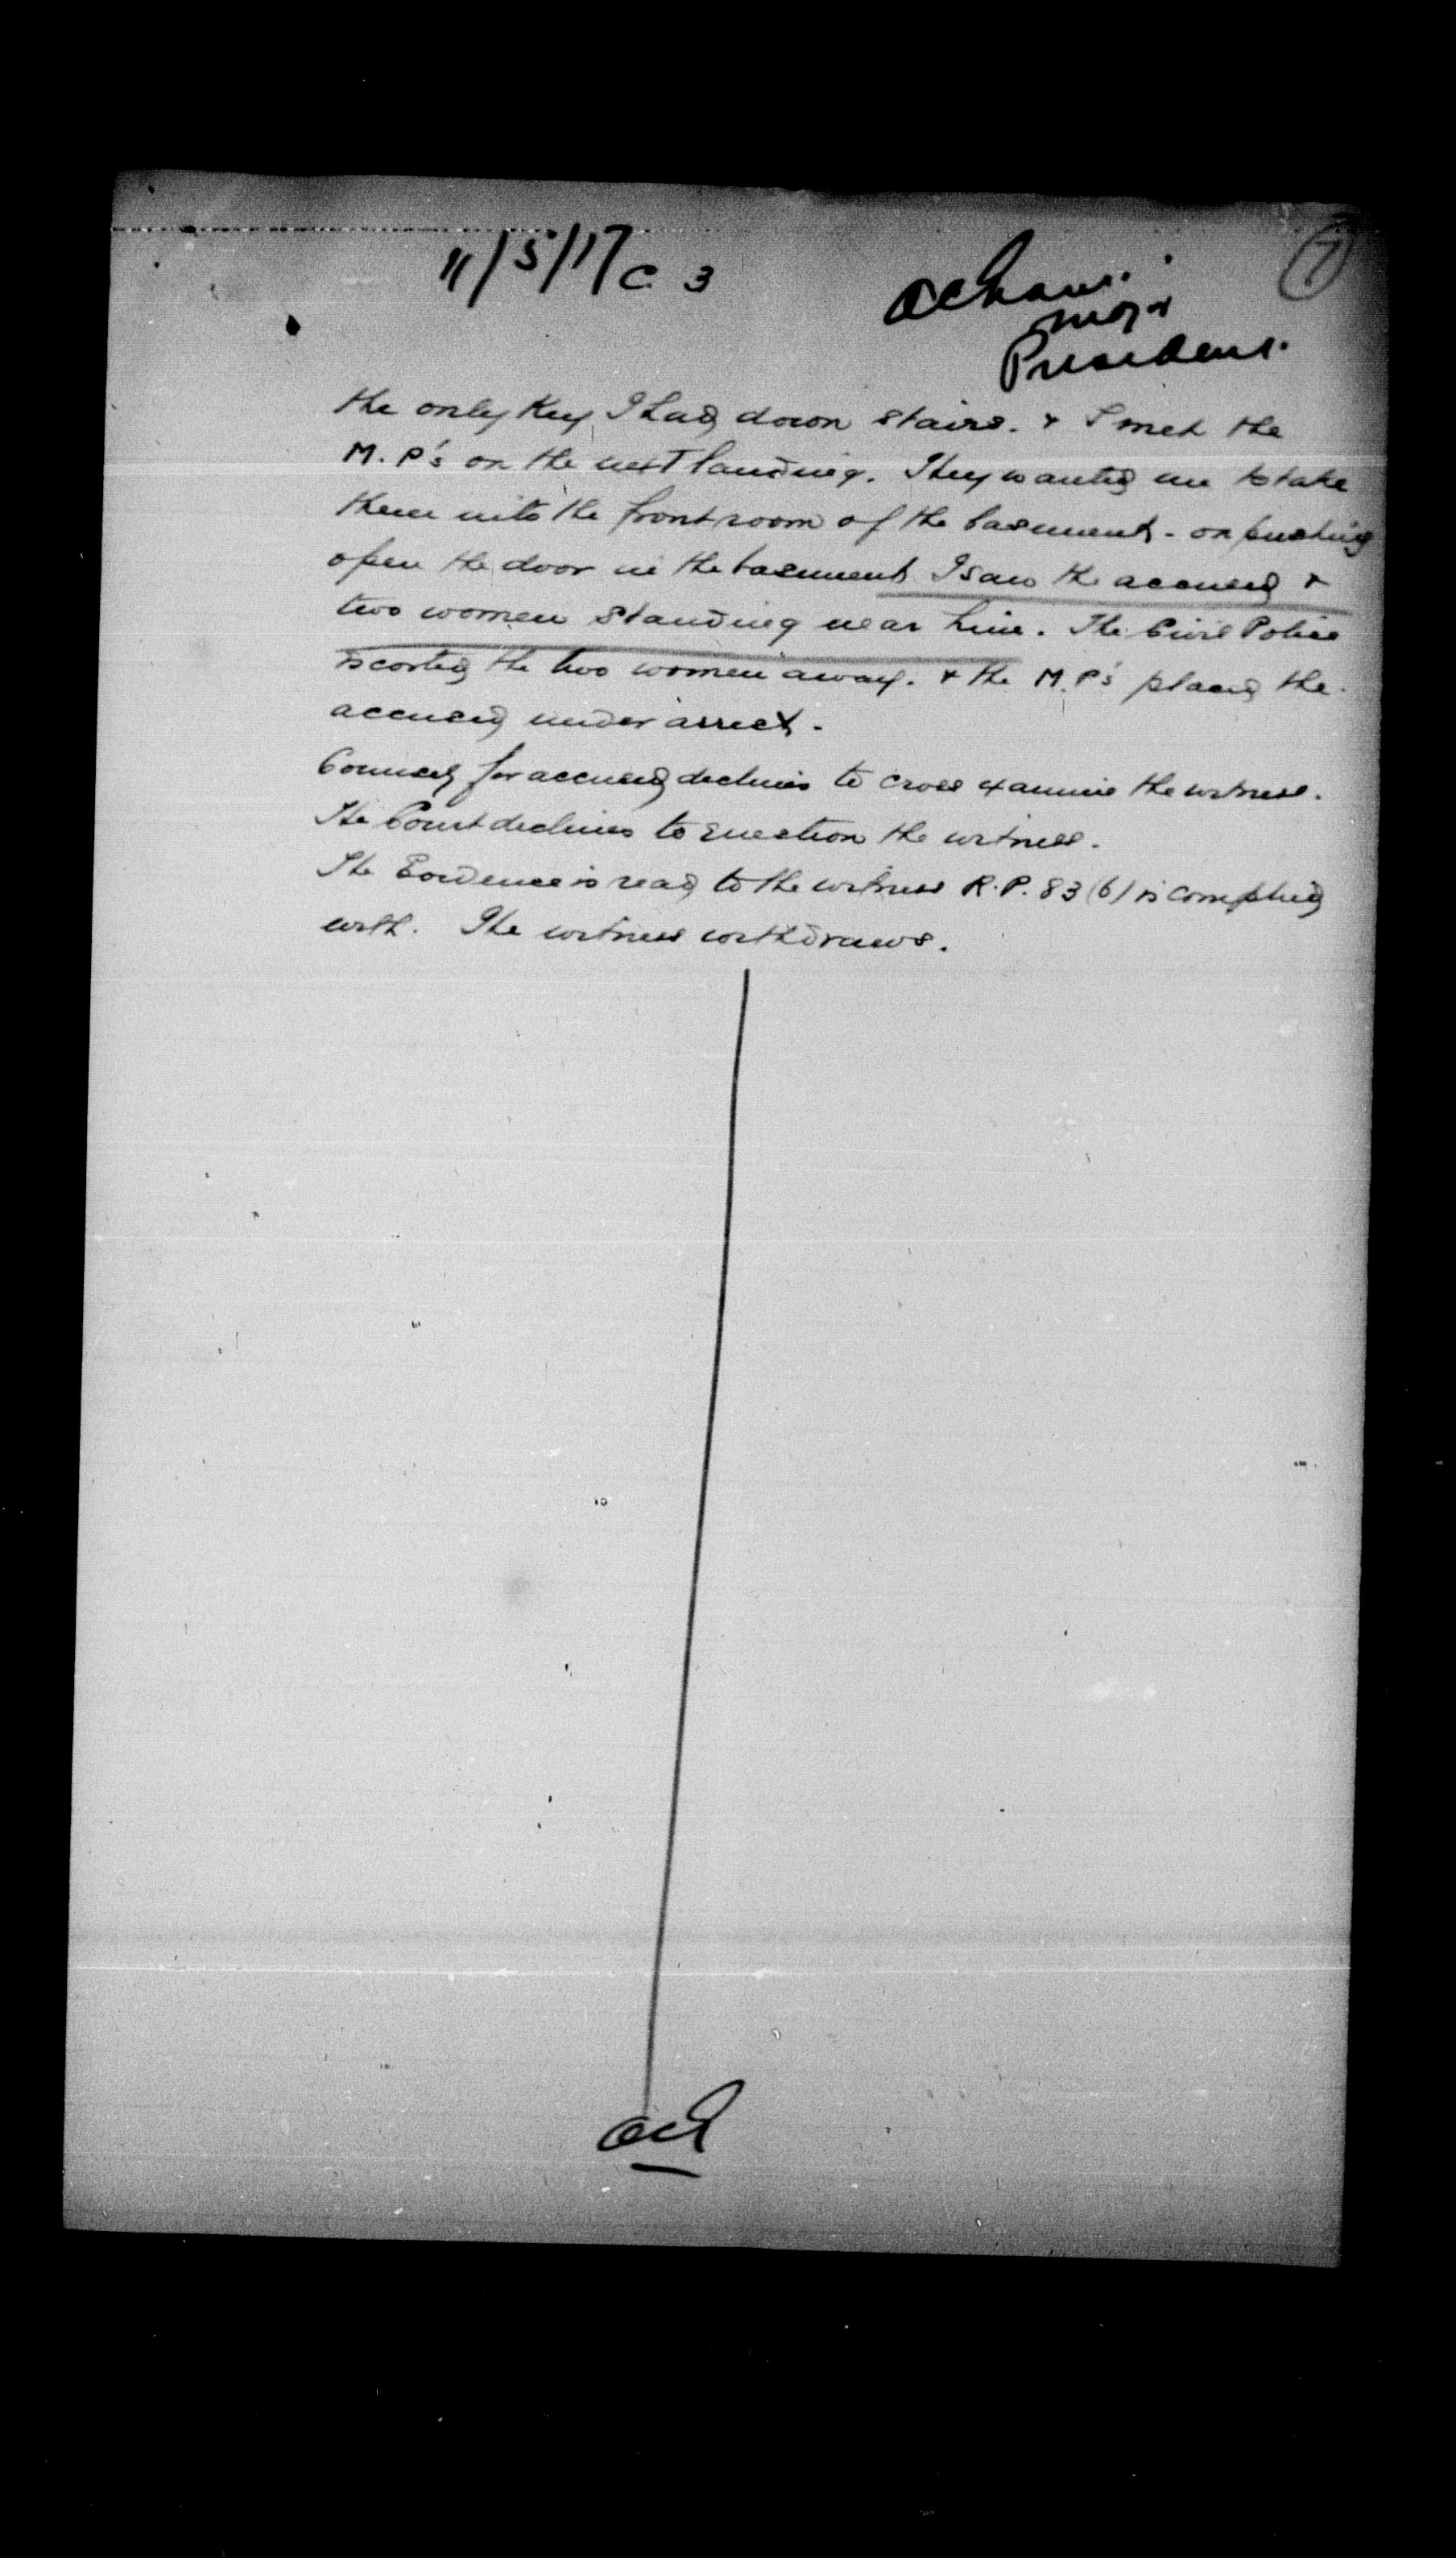 7
11/5/17 C 3
Major
President.
the only key I had down stairs. & I met the
M.P's on the next landing. They wanted me to take
them into the front room of the basement - on pushing
open the door in the basement I saw the accused &
two women standing near him. The Civil Police
escorted the two women away. & the M.P's placed the
accused under arrest.
Counsel for accused declines to cross examine the witness.
The Court declines to question the witness.
The Evidence is read to the witness R.P. 83 (b) is complied
with. The witness withdraws.